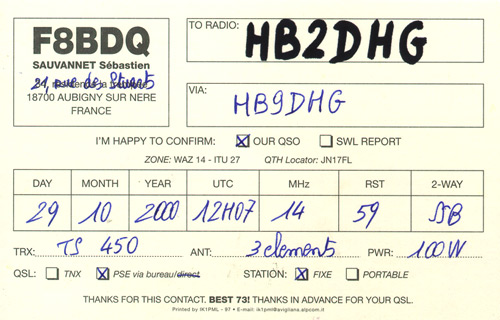 F8BDQ
SAUVANNET Sébastien
21, rue des Stuarts
18700 AUBIGNY SUR NERE
FRANCE
TO RADIO: HB2DHG
VIA: HB9DHG
I'M HAPPY TO CONFIRM: X OUR QSO SWL REPORT
ZONE: WAZ 14 - ITU 27 QTH Locator: JN17FL
DAY MONTH YEAR UTC MHz RST 2-WAY
29 10 2000 12H07 14 59 SSB
TRX: TS 450 ANT: 3 elements PWR: 100W
QSL: TNX X PSE via bureau/direct STATION: X FIXE PORTABLE
THANKS FOR THIS CONTACT. BEST 73! THANKS IN ADVANCE FOR YOUR QSL.
Printed by IK1PML - 97 • E-mail: ik1pml@avigliana.alpcom.it